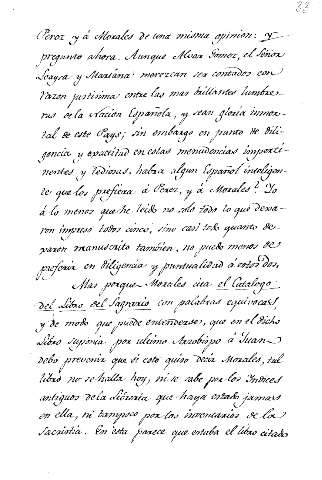 22
Perez y á Morales de una misma opinion: y
pregunto ahora. Aunque Alvar Gomez, el Señor
Loaysa y Mariana merezcan ser contados con
razon justisima entre las mas brillantes lumbre-
ras de la Nacion Española, y sean gloria inmor-
tal de este Pays; sin embargo en punto de dili-
gencia y exactitud en estas menudencias imperti-
nentes y tediosas, habrá algun Español inteligen-
te que los prefiera á Perez, y á Morales? Yo
á lo menos que he leido no solo todo lo que dexa-
ron impreso todos cinco, sino casi todo quanto de-
xaron manuscrito tambien, no puedo menos de
preferir en diligencia y puntualidad á estos dos.
Mas porque Morales cita el Catalogo
del Libro del Sagrario con palabras equivocas,
y de modo que puede entenderse, que en el dicho
Libro suponia por ultimo Arzobispo á Juan
debo prevenir que si esto quiso decir Morales, tal
libro no se halla hoy, ni se sabe por los Indices
antiguos de la Libreria que haya estado jamas
en ella, ni tampoco por los inventarios de la
Sacristia. En esta parece que estaba el libro citado